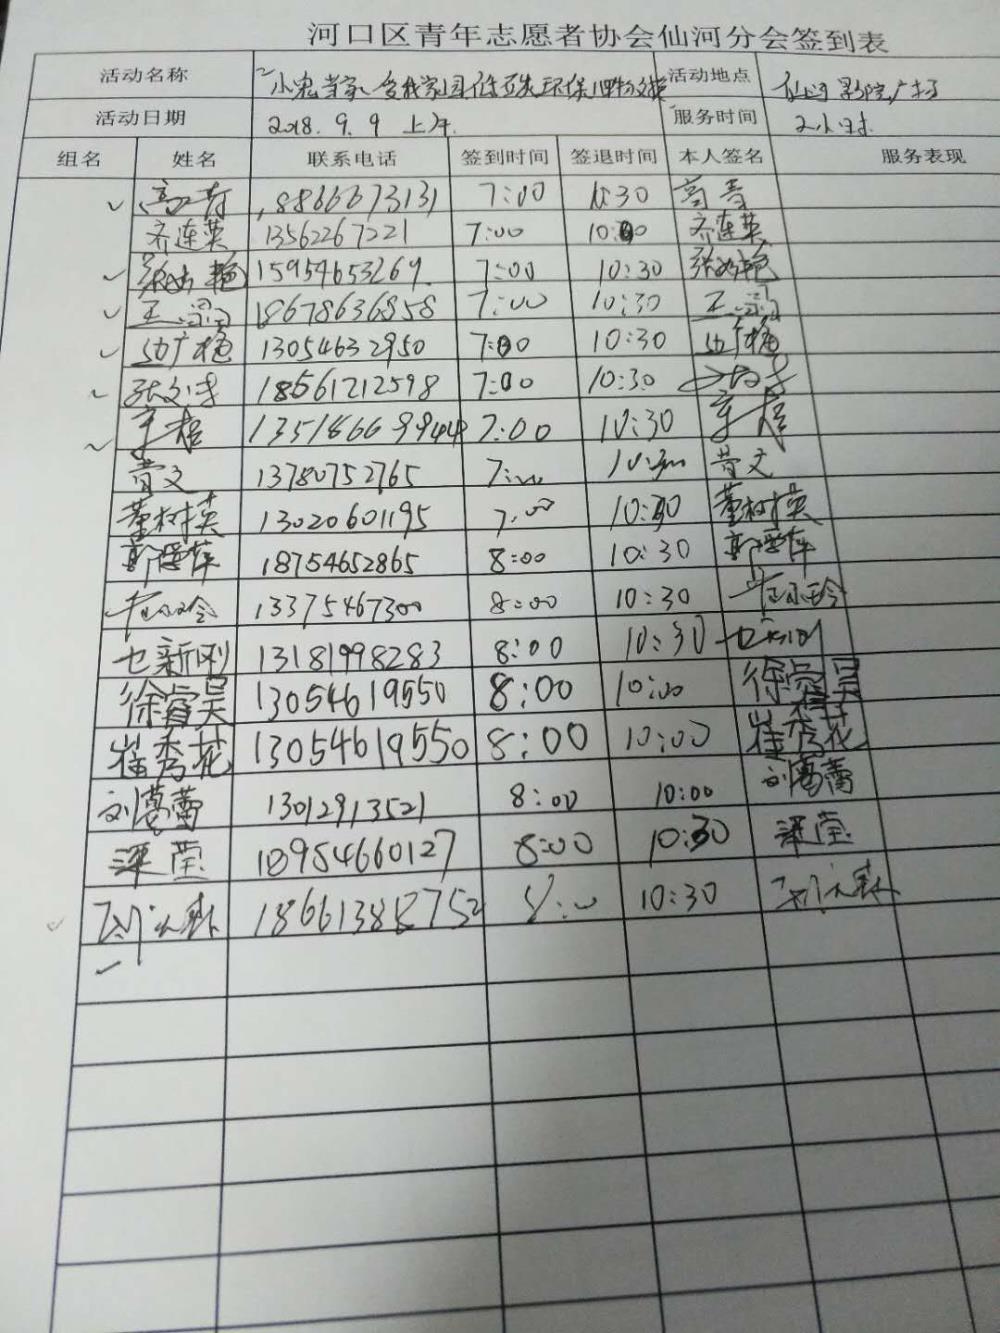 河口区青年志愿者协会仙河分会签到表
活动名称 "小鬼当家 爱我家园 低碳环保 活动地点 仙河影院广场
活动日期 2018.9.9 上午. 服务时间 2小时
组名 姓名 联系电话 签到时间 签退时间 本人签名 服务表现
高青 18866673131 7:00 10:30 高青
齐连英 13562267221 7:00 10:30 齐连英
张 艳 15954653269 7:00 10:30 张 艳
王 18678636858 7:00 10:30 王
边广艳 13054632950 7:00 10:30 边广艳
张 18561212598 7:00 10:30
7:00 10:30
文 13780752765 7:00 10:30 文
董树英 13020601195 7:00 10:30 董树英
郭 萍 18754652865 8:00 10:30 郭 萍
13375467300 8:00 10:30
七新刚 13181998283 8:00 10:30 七新刚
徐睿昊 13054619550 8:00 10:00 徐睿昊
崔秀花 13054619550 8:00 10:00 崔秀花
刘蕾 13012913521 8:00 10:00 刘蕾
梁莹 18954660127 8:00 10:30 梁莹
8:00 10:30